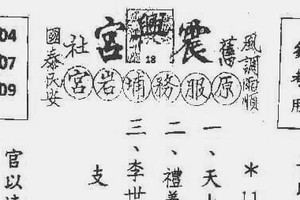 風調雨順
舊
震興宮
社
國泰民安
原服務埔岩宮
18
*11
一、天上
二、禮善
三、李世
支
04
07
09
官以